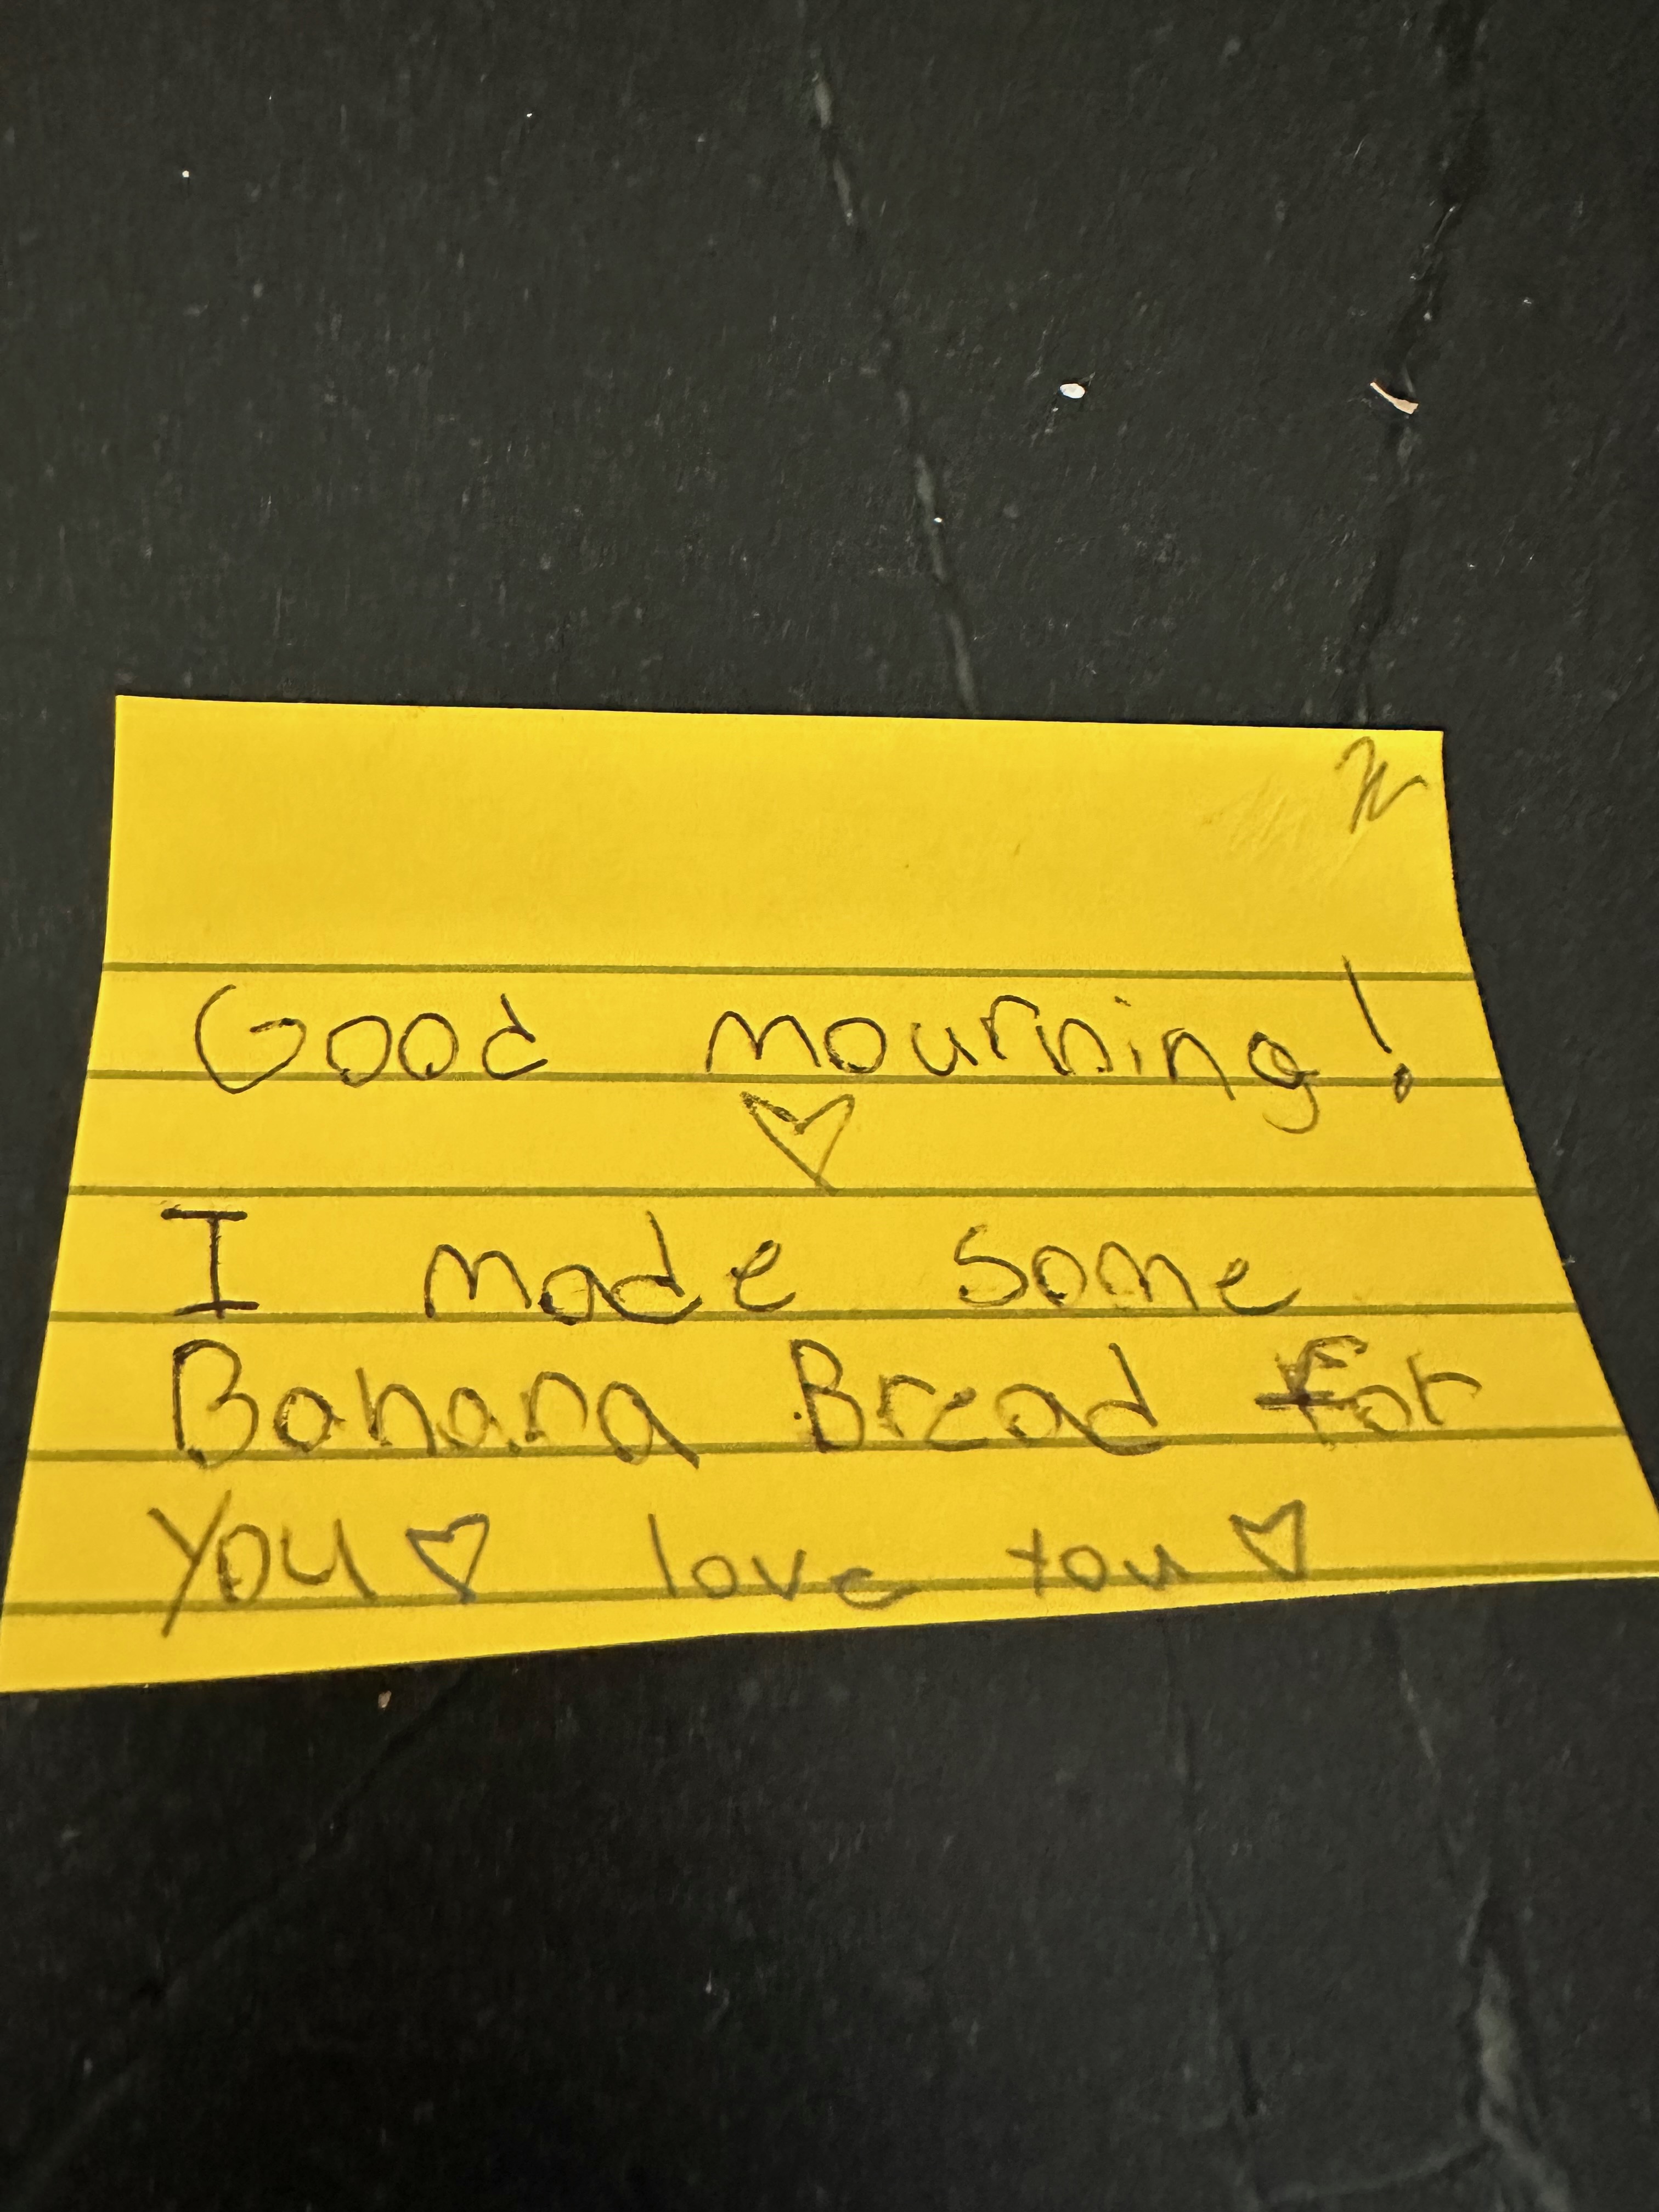 Good mourning!
♡
I made some
Banana Bread for
You♡ love you♡